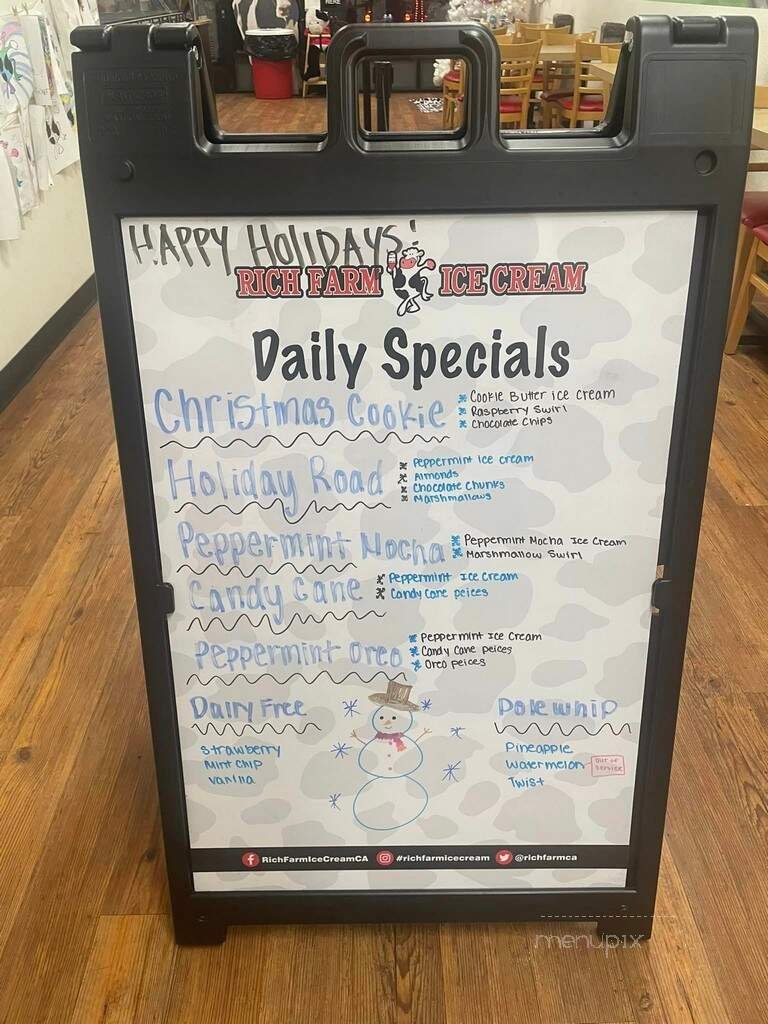 HAPPY HOLIDAYS!
RICH FARM ICE CREAM
Daily Specials
Christmas Cookie
Cookie Butter ice cream
Raspberry Swirl
Chocolate Chips
Holiday Road
Peppermint Ice cream
Almonds
Chocolate Chunks
Marshmallows
Peppermint Mocha
Peppermint Mocha Ice Cream
Marshmallow Swirl
Candy Cane
Peppermint Ice Cream
Candy Cane peices
Peppermint Oreo
Peppermint Ice Cream
Candy Cane peices
Oreo peices
Dairy Free
Strawberry
Mint Chip
Vanilla
Dole whip
Pineapple
Watermelon
out of
service
Twist
RichFarmIceCreamCA #richfarmicecream @richfarmca
menupix